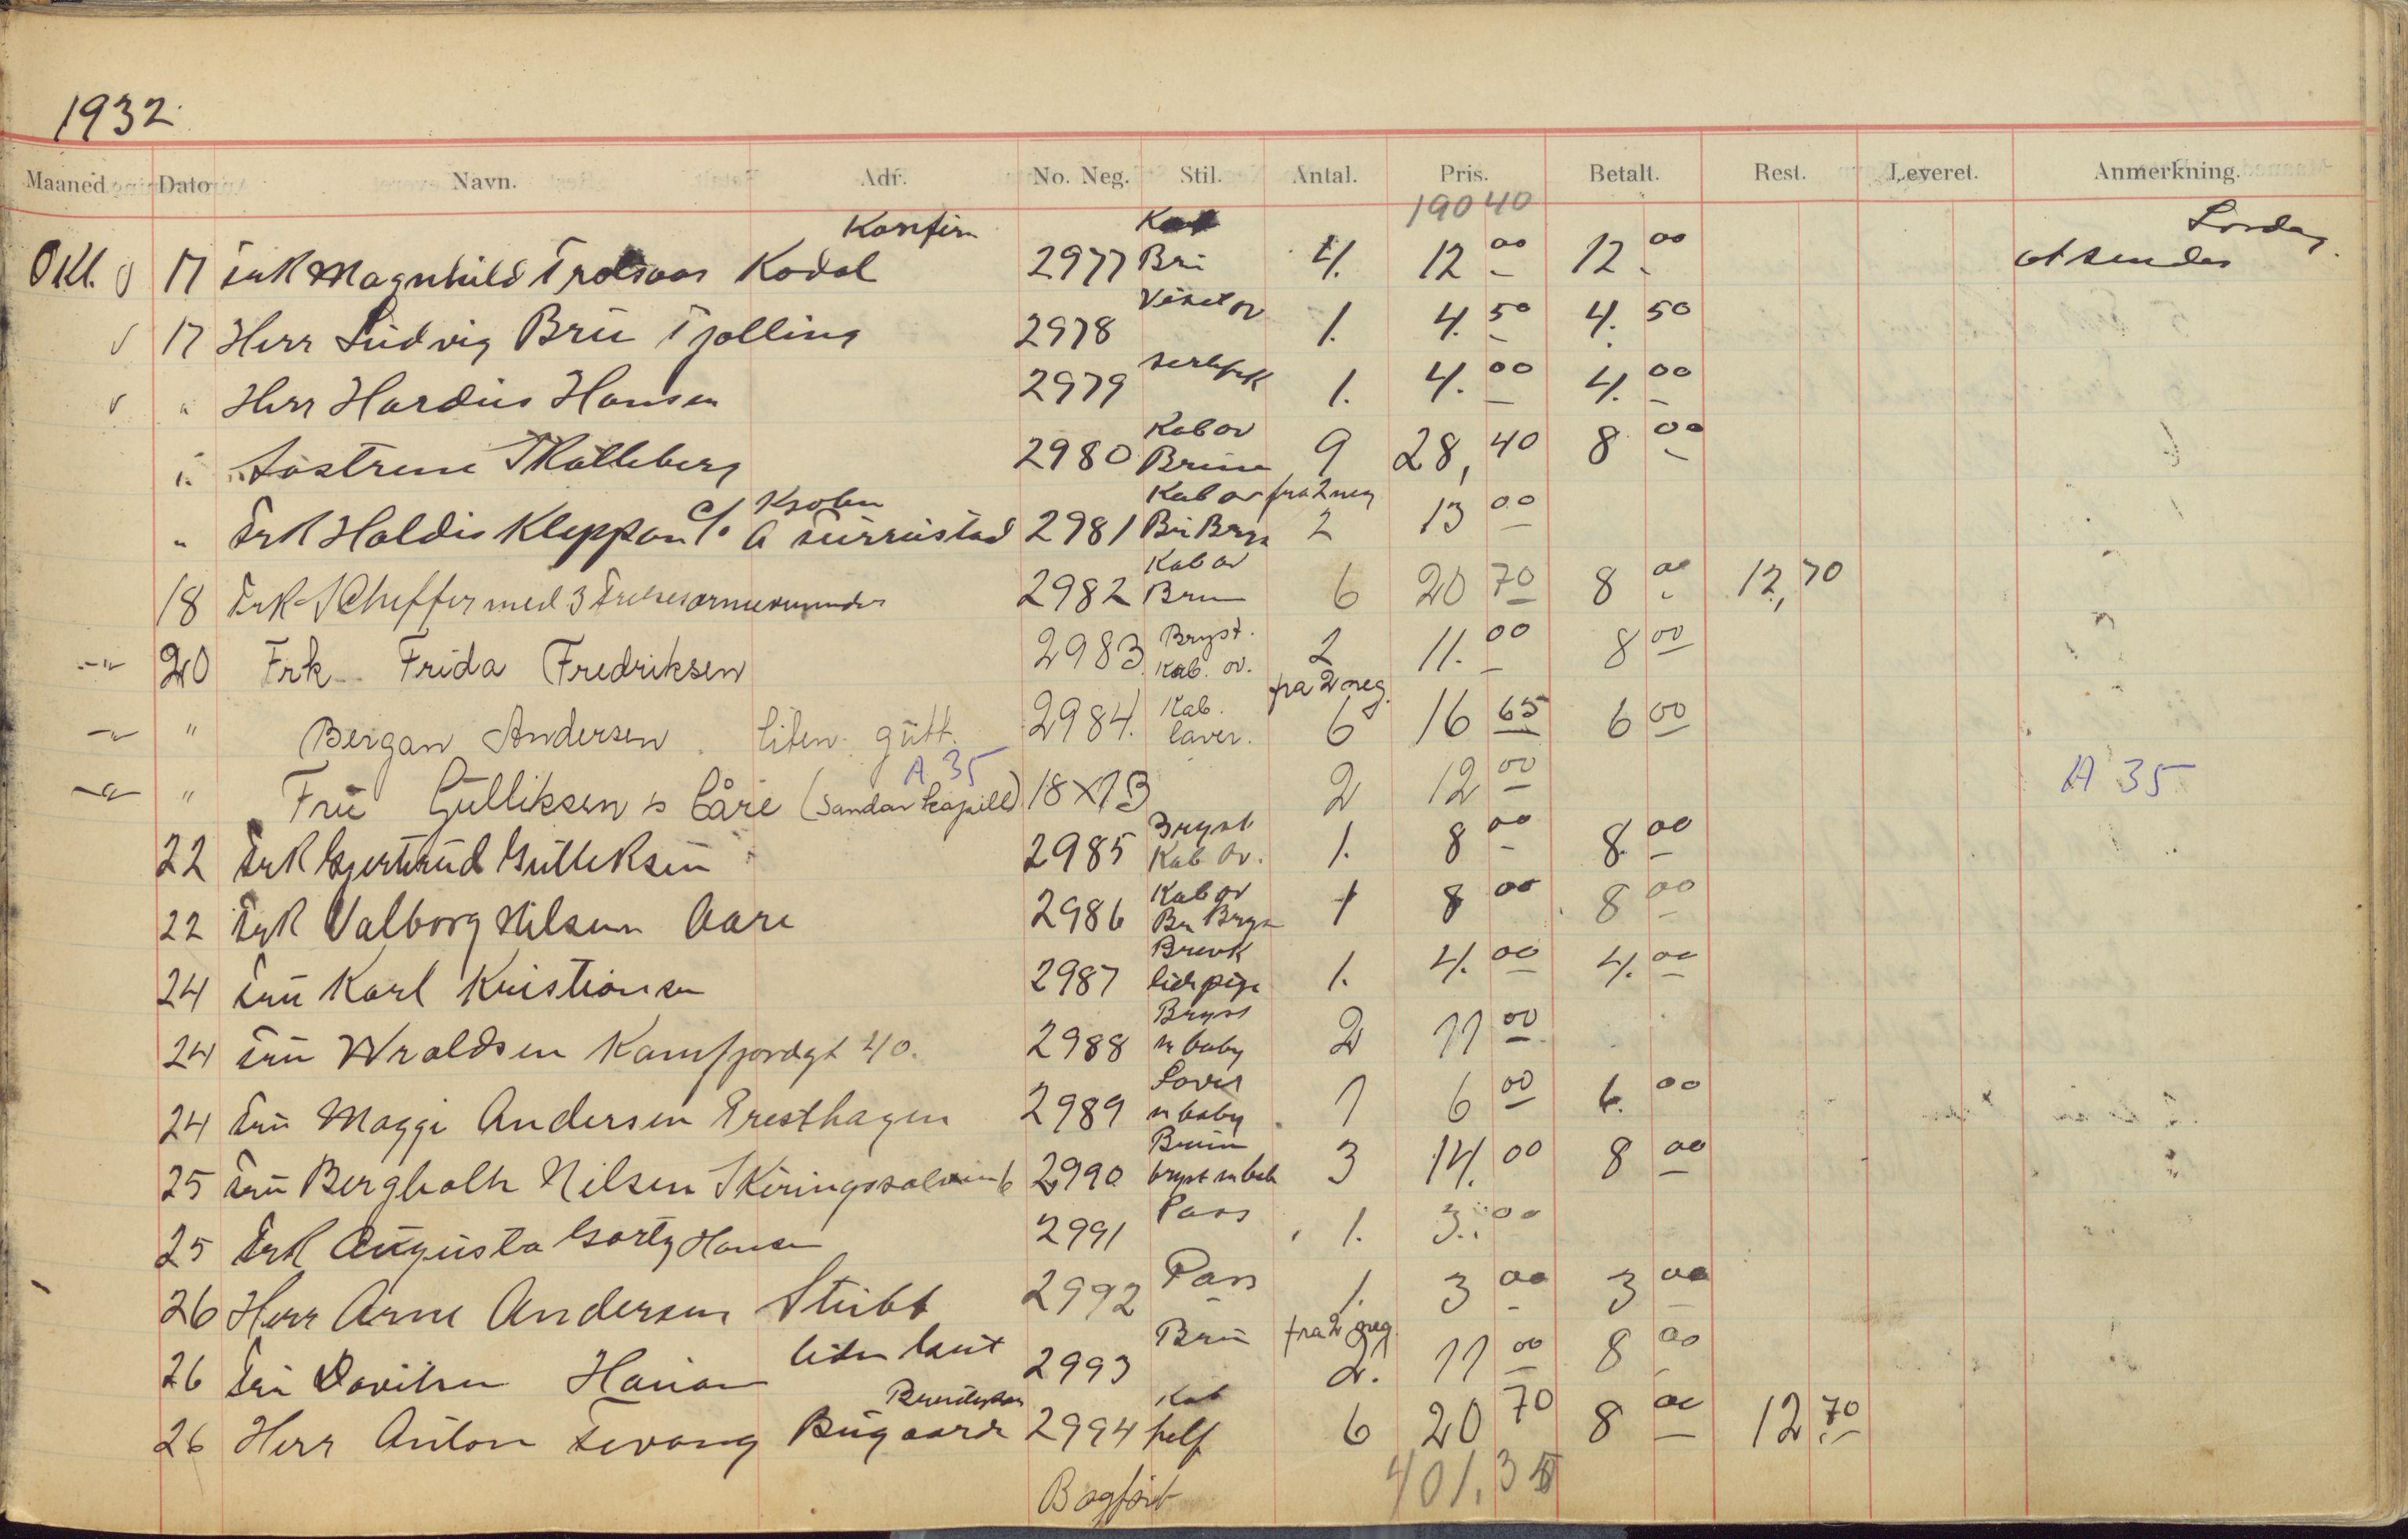 1932
Maaned Dato Navn. Adr. No. Neg. Stil. Antal. Pris. Betalt. Rest. Leveret. Anmerkning.
190 40
Okt. 17 Frk Magnhild Kodal Konfirm 2977 Bri 4. 12 00 12 00 Lordag
17 Herr Ludvig Bru Tjolling 2978 Visit ov 1. 4. 50 4. 50
" Herr Hardus Hansen 2979 1. 4. 00 4. 00
" Søstrene Skålleberg 2980 Kab ov Brun 9 28, 40 8 00
" Frk Haldis Kleppan c/o A Furrustad 2981 Kab ov fra 2 neg 2 13 00
18 Frk Scheffer med 3 2982 Kab ov Brun 6 20 70 8 00 12,70
-"- 20 Frk. Frida Fredriksen 2983 Bryst. Kab. ov. 2 11.00 8 00
fra 2 neg.
-"- " Bergan Andersen. liten gutt. 2984. Kab. laver. 6 16 65 6 00
A 35
-"- " Fru Gulliksen s Cåre (Sandar kapell) 18x13 2 12 00 A 35
22 Frk Gjertrud Gulliksen 2985 Bryst Kab Ov. 1. 8 00 8. 00
22 Frk Valborg Nilsen Aare 2986 Kab ov Bru Brys 1 8 00 8 00
24 Fru Karl Kristiansen 2987 Brevk 1. 4. 00 4. 00
24 Fru Wraldsen Kamfjordgt 40. 2988 Bryst m baby 2 11 00
24 Fru Maggi Andersen Presthagen 2989 Laver m baby 1 6 00 6. 00
25 Fru Bergliolh Nilsen 2990 Brun bryst 3 14. 00 8 00
25 Frk Augusta Gorty Hansen 2991 Pass 1. 3. 00
26 Herr Arne Andersen Stubb 2992 Pass 1. 3 00 3 00
26 Fru Davidsen liten 2993 Bru fra 2 neg. 2. 11 00 8 00
26 Herr Anton Tevang Bugaarde 2994 Kab helf 6 20 70 8 00 12.70
Bogført 401,35